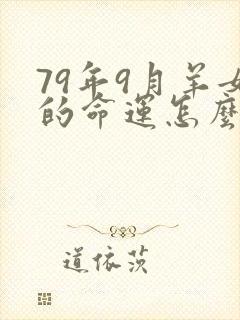 79年9月羊女
的命运怎麽
道依茨